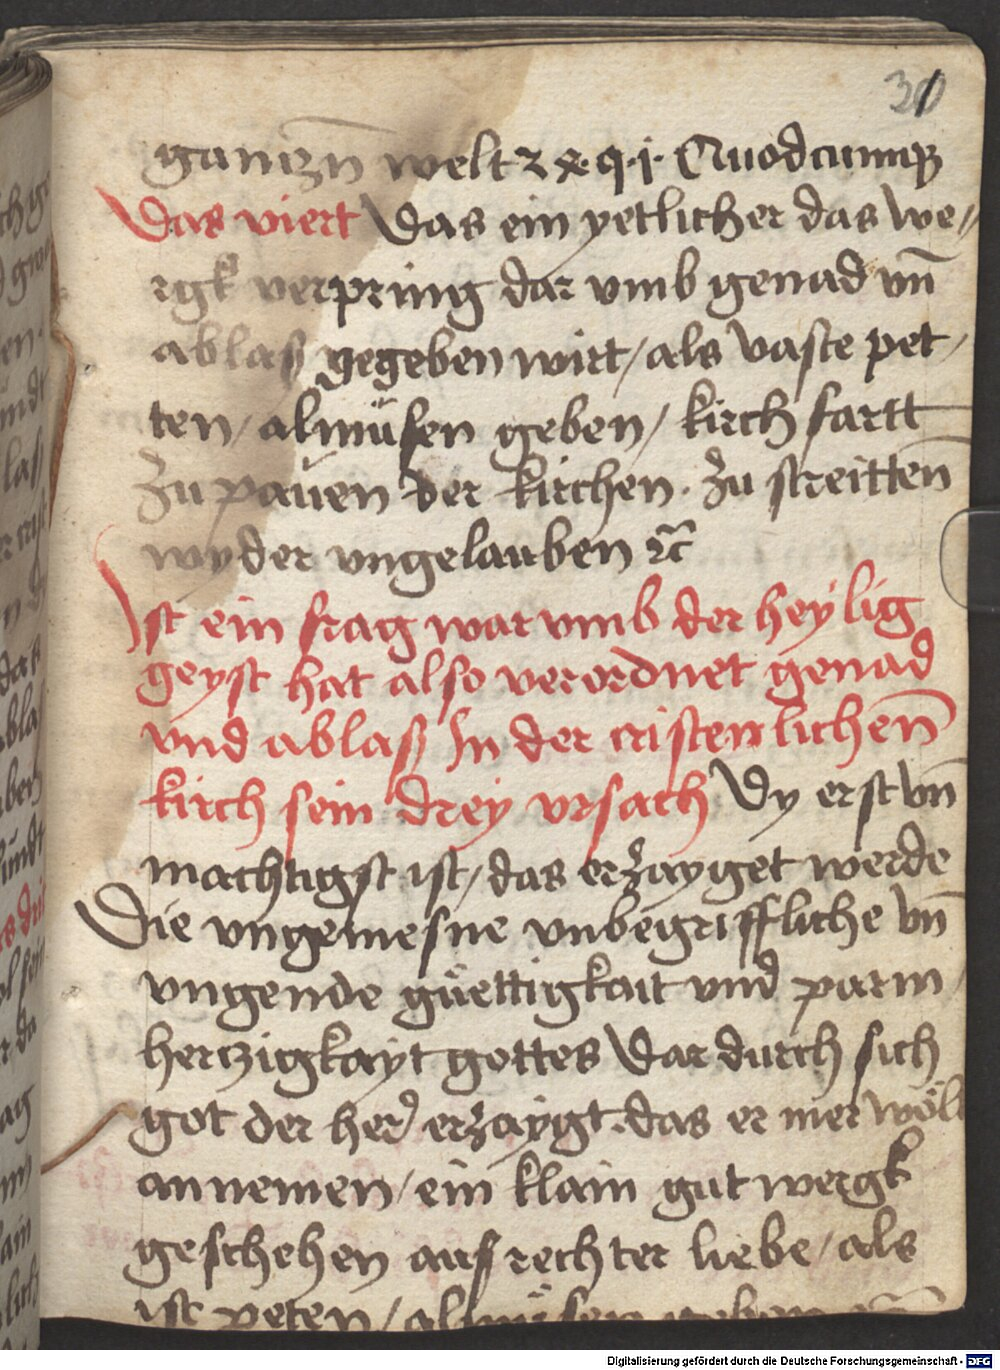 30
gannczn̄ welt 2 x q i Quodcumqȝ
Das viert Das ein yetlicher das we⸗
rgk verpring dar vmb genad vn̄
ablaß gegeben wirt / als vaste pet
ten / almüsen geben / kirch fartt
zu paüen der kirchen . zu streitten̄
wyder vngelauben ⁊c̄
Ist ein frag war vmb der heylig
geyst hat also verordnet genad
vnd ablaß In der cristenlichen̄
kirch sein drey vrsach Dy erst vn̄
machtigst ist / das erzayget werde
Die vngemesne vnbegriffliche vn̄
vngende güettigkait vnd parm
herczigkayt gottes Dar durch sich
got der her erzaygt das er mer wöll
annemen / ein klain gut wergk
geschehen aus rechter liebe / als
ist peten / almüsen geben
Digitalisierung gefördert durch die Deutsche Forschungsgemeinschaft - DFG